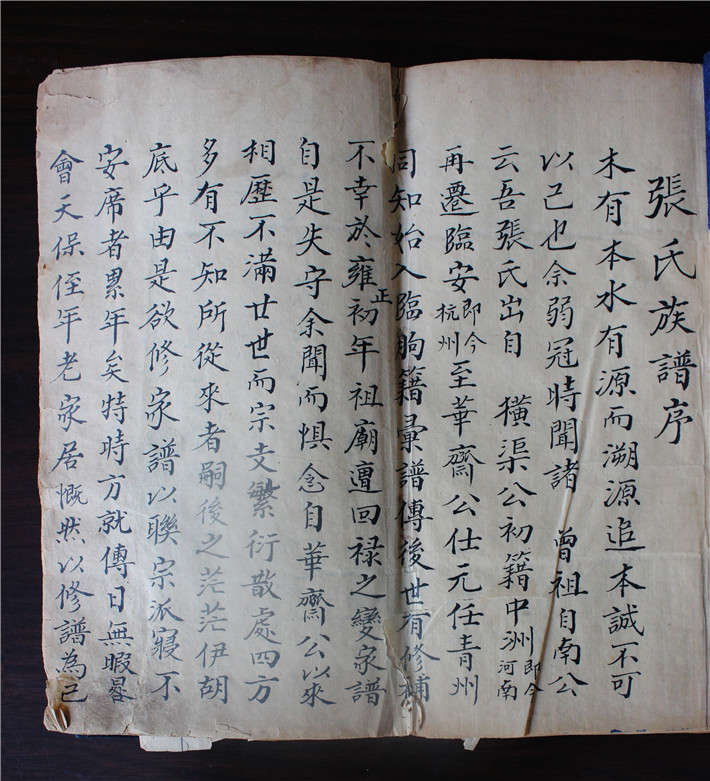 張氏族譜序
木有本水有源而溯源追本誠不可
以已也余弱冠時聞諸 曾祖自南公
云吾張氏出自 橫渠公初籍中洲即今河南
再遷臨安即今杭州至華齋公仕元任青州
同知始入臨朐籍彙譜傳後世有修補
不幸於雍正初年祖廟遭回祿之變家譜
自是失守余聞而惧念自華齋公以來
相歷不滿廿世而宗支繁衍散處四方
多有不知所從來者嗣後之茫茫伊胡
底乎由是欲修家譜以聯宗派寢不
安席者累年矣特時方就傅日無暇晷
會天保侄年老家居慨然以修譜為己